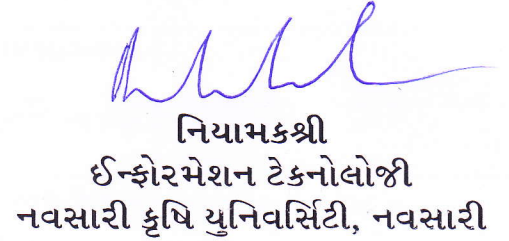 નિયામકશ્રી
ઈન્ફોરમેશન ટેકનોલોજી
નવસારી કૃષિ યુનિવર્સિટી, નવસારી